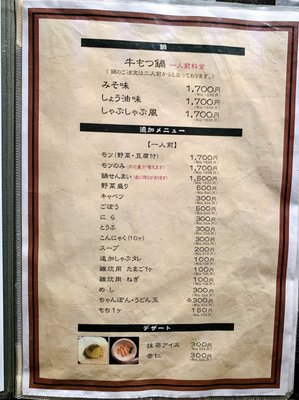 鍋
牛もつ鍋 一人前料金
(鍋のご注文は二人前からとなっております。)
みそ味 1,700円
しょう油味 1,700円
しゃぶしゃぶ風 1,700円
追加メニュー
【一人前】
モツ(野菜・豆腐付) 1,700円
モツのみ 1,700円
鍋せんまい 1,500円
野菜盛り 500円
キャベツ 300円
ごぼう 500円
にら 300円
とうふ 300円
こんにゃく(10ヶ) 300円
スープ 200円
追加しゃぶタレ 100円
雑炊用 たまご1ヶ 100円
雑炊用 ねぎ 100円
めし 300円
ちゃんぽん・うどん玉 各300円
もち1ヶ 150円
デザート
抹茶アイス 300円
杏仁 300円